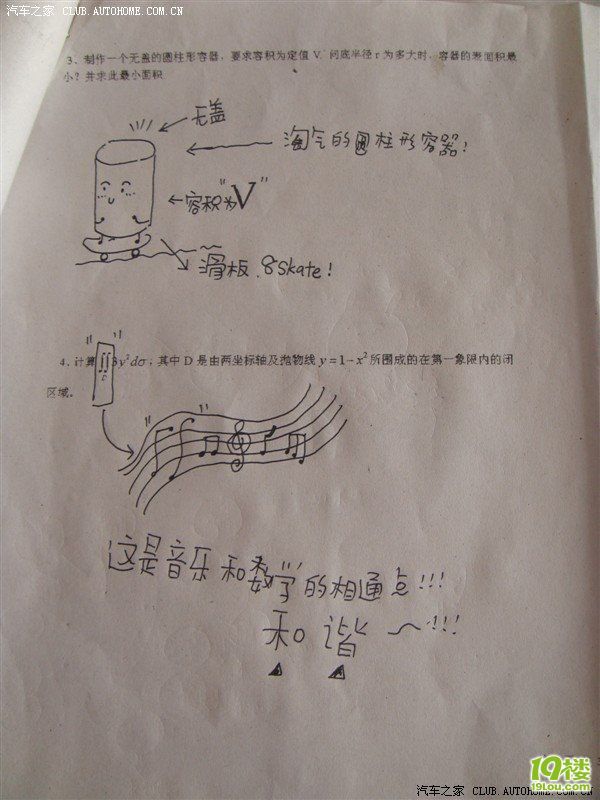 汽车之家 CLUB.AUTOHOME.COM.CN
3、制作一个无盖的圆柱形容器，要求容积为定值 V，问底半径 r 为多大时，容器的表面积最
小？并求此最小面积
无盖
淘气的圆柱形容器！
容积“为”V”
滑板.8skate!
4、计算∬3y²dσ，其中 D 是由两坐标轴及抛物线 y = 1 − x² 所围成的在第一象限内的闭
区域。
这是音乐和数“学”的相通点!!!
和谐～!!!
19楼
19lou.com
汽车之家 CLUB.AUTOHOME.COM.CN